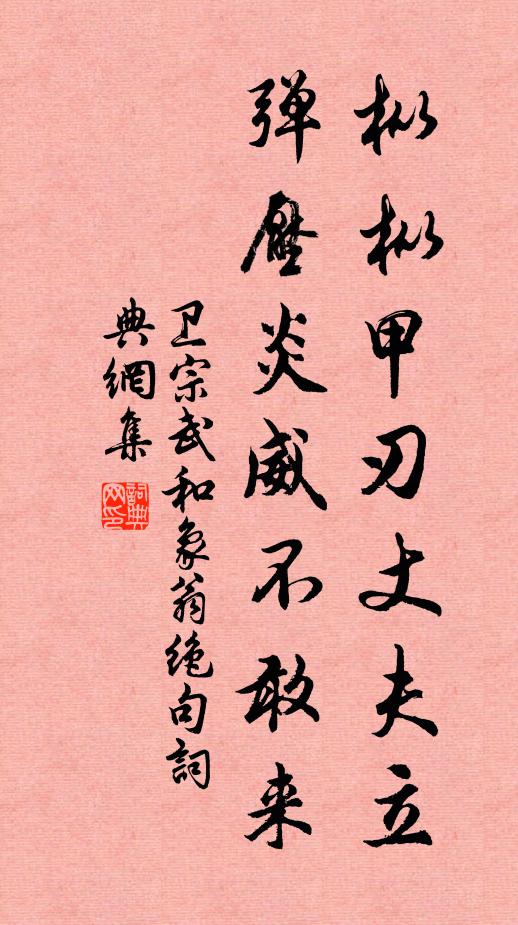 枞枞甲刃丈夫立
弹壓炎威不敢来
卫宗武和象翁绝句詞
典網集
詞典网印